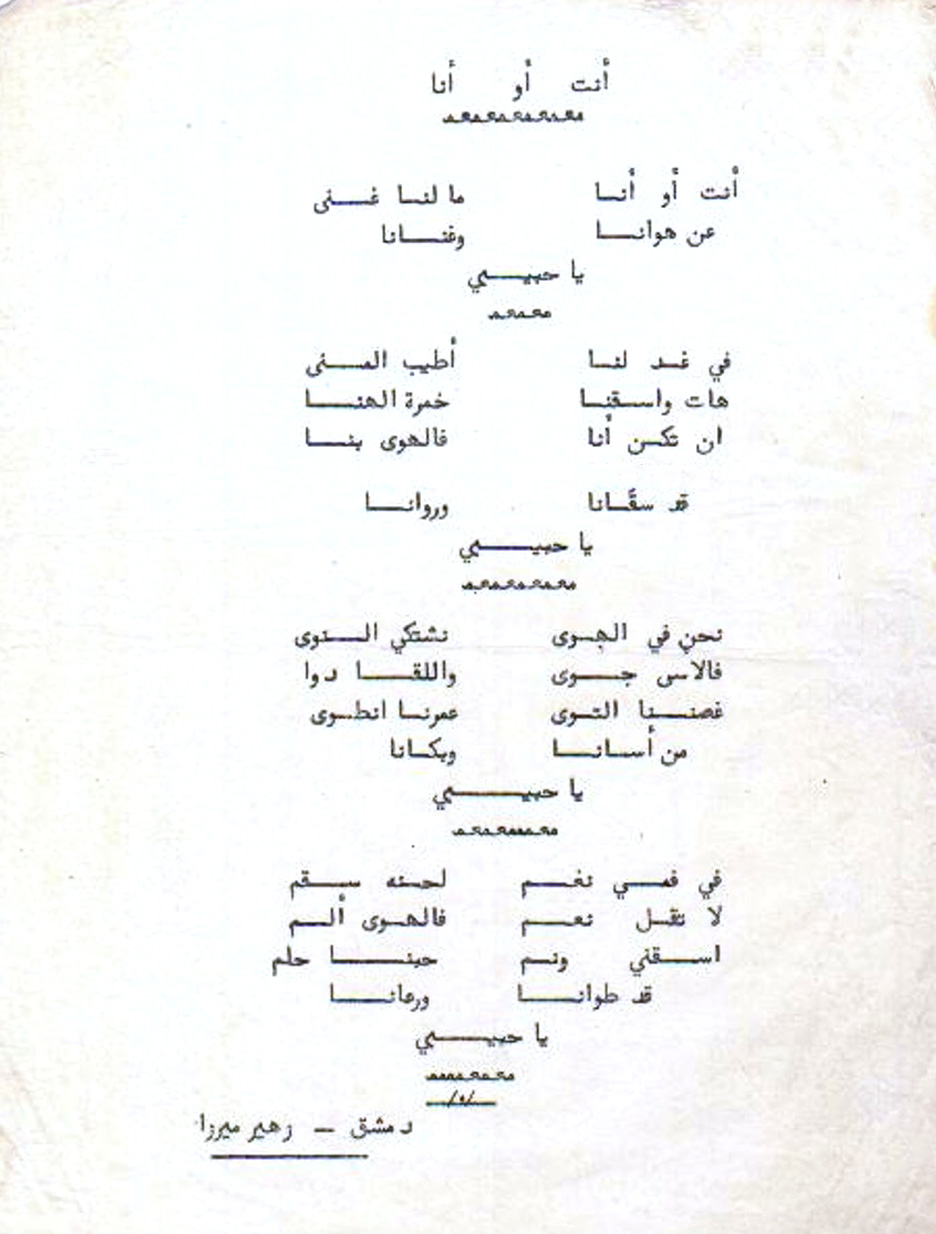 أنت أو أنا
أنت أو أنـا ما لنـا غـنى
عن هوانـا وغنـانا
يا حبيـبي
في غـد لنـا أطيب المـنى
هات واسـقنـا خمرة الهنـا
ان تكـن أنا فالهوى بنـا
قد سقّـانا وروانـا
يا حبيـبي
نحن في الهـوى نشتكي النـوى
فالاسى جـوى واللقـا دوا
غصنـنا التـوى عمرنـا انطـوى
من أسـانـا وبكـانا
يا حبيـبي
في فمـي نغـم لحنـه سـقم
لا تقـل نعـم فالهـوى ألـم
اسـقني ونـم حبنـا حلم
قد طوانـا ورعانـا
يا حبيـبي
دمشق - زهير ميرزا